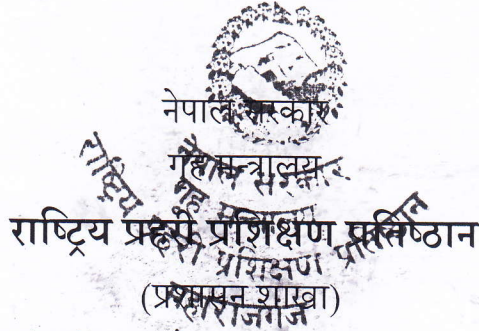 नेपाल सरकार
गृह मन्त्रालय
राष्ट्रिय प्रहरी प्रशिक्षण प्रतिष्ठान
(प्रशासन शाखा)
नेपाल सरकार
गृह मन्त्रालय
राष्ट्रिय प्रहरी प्रशिक्षण प्रतिष्ठान
महाराजगंज